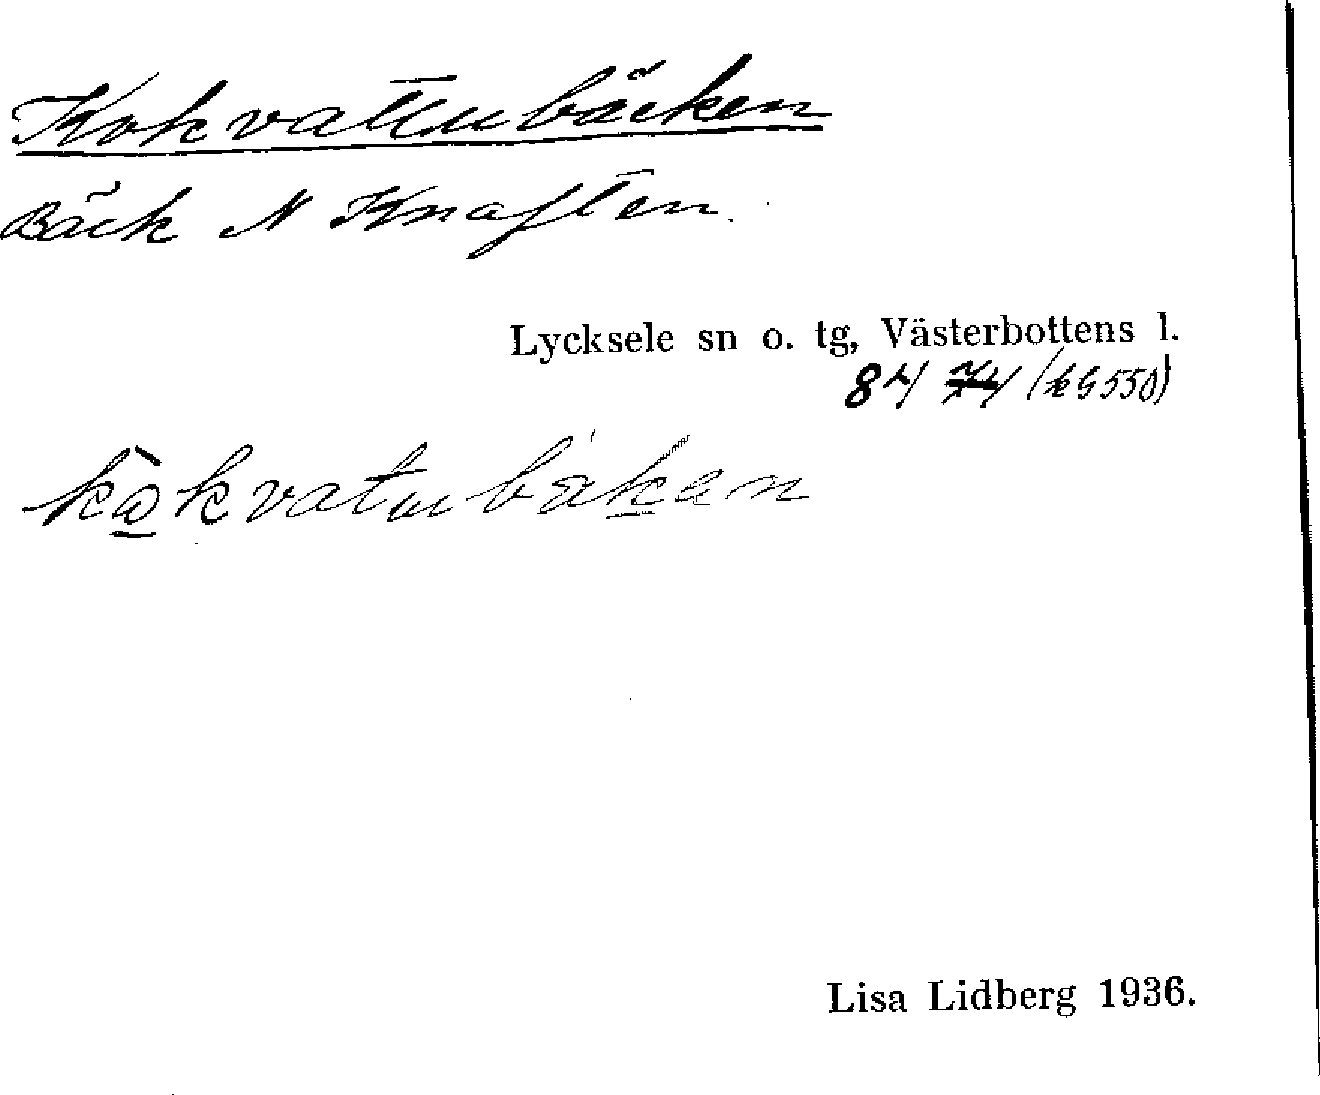 Kokvattubäcken
Bäck N Knaften.
Lycksele sn o. tg, Västerbottens l.
(kG550)
kòkvatubäken
Lisa Lidberg 1936.